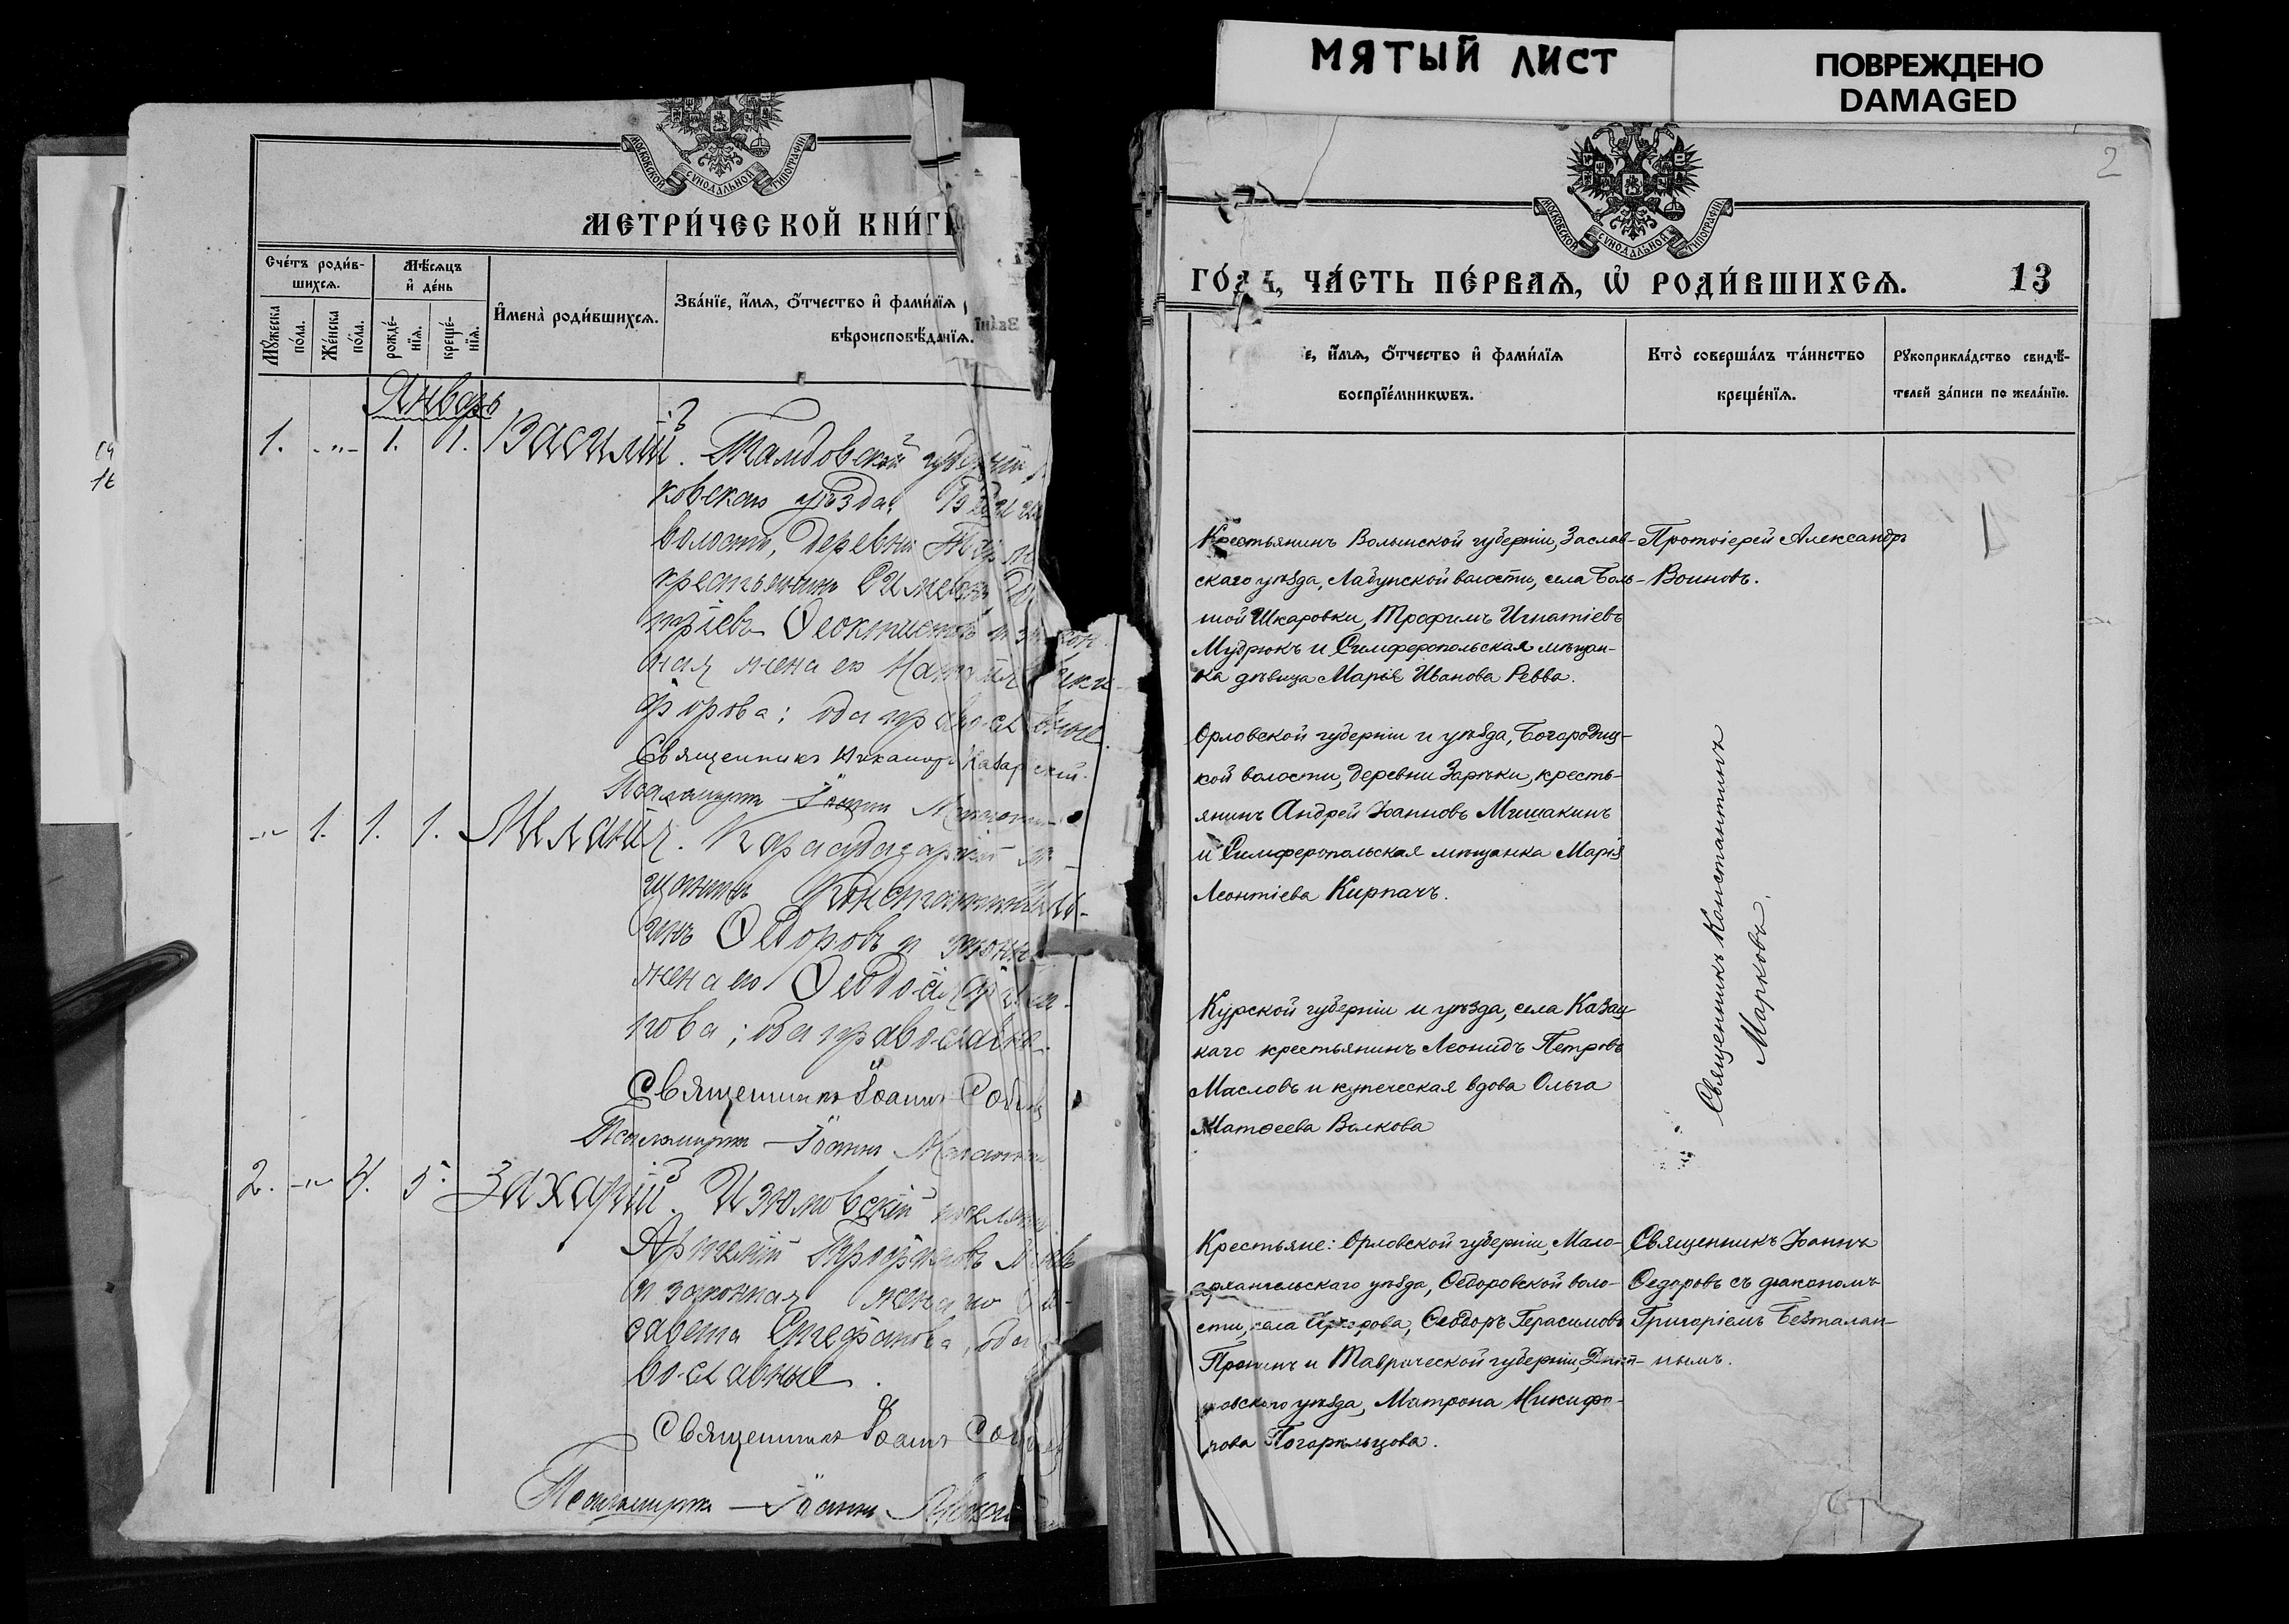 МЯТЫЙ ЛИСТ
ПОВРЕЖДЕНО
DAMAGED
2
МОСКОВСКОЙ СѴНОДАЛЬНОЙ ТИПОГРАФІИ
МЕТРИ́ЧЕСКОЙ КНИ́ГИ
Сче́тъ роди́в-
шихсѧ.
Мѣ́сѧцъ
и҆ де́нь
Мꙋ́жеска
по́ла.
Же́нска
по́ла.
рожде́-
нїѧ.
креще́-
нїѧ.
И҆мена̀ роди́вшихсѧ.
Зва́нїе, и҆́мѧ, ѻ҆́тчество и҆ фами́лїѧ
вѣроисповѣ́данїѧ.
Январь
1. -"- 1. 1. Василій. Тамбовской губерніи
ковскаго уѣзда,
волости, деревни
крестьянинъ Симеонъ
тріевъ Ѳеоктистовъ и закон
ная жена его Ники-
форова; оба православные.
Священникъ
Псаломщикъ Іоаннъ
-"- 1. 1. 1. Меланія. Карасубазарскій мѣ-
щанинъ Константинъ
Ѳедоровъ и законн
жена его
нова; оба православные.
Священникъ Іоаннъ
Псаломщикъ Іоаннъ
2. -"- 4. 5. Захарій. Изюмовскій поселян
и законная жена его
савета Стефанова, оба
вославные.
Священникъ Іоаннъ
Псаломщикъ Іоаннъ
МОСКОВСКОЙ СѴНОДАЛЬНОЙ ТИПОГРАФІИ
ГО́ДЪ, ЧА́СТЬ ПЕ́РВАѦ, Ѡ҆ РОДИ́ВШИХСѦ. 13
е, и҆́мѧ, ѻ҆́тчество и҆ фами́лїѧ
воспрїе́мникѡвъ.
Кто̀ соверша́лъ та́инство
креще́нїѧ.
Рꙋкоприкла́дство свидѣ́-
телей за́писи по жела́нїю.
Крестьянинъ Волынской губерніи, Заслав-
скаго уѣзда, Лабунской волости, села Боль-
шой Шкаровки, Трофимъ Игнатіевъ
Мудрюкъ и Симферопольская мѣщан-
ка дѣвица Марія Иванова Ревва.
Протоіерей Александръ
Воиновъ.
Орловской губерніи и уѣзда, Богородиц-
кой волости, деревни Зарѣки, кресть-
янинъ Андрей Іоанновъ Мишакинъ
и Симферопольская мѣщанка Марія
Леонтіева Кирпачъ.
Священникъ Константинъ
Марковъ.
Курской губерніи и уѣзда, села Казац-
каго крестьянинъ Леонидъ Петровъ
Масловъ и купеческая вдова Ольга
Матѳеева Волкова
Крестьяне: Орловской губерніи, Мало-
архангельскаго уѣзда, Ѳедоровской воло-
сти, села Ѳеодоръ Герасимовъ
Пронинъ и Таврической губерніи, Днѣп-
ровскаго уѣзда, Матрона Никифо-
рова Погорѣльцова.
Священникъ Іоаннъ
Ѳедоровъ съ діакономъ
Григоріемъ Безталан-
нымъ.